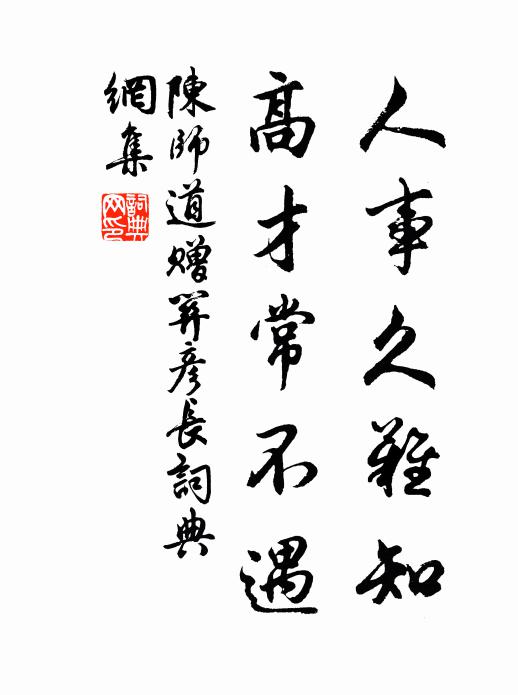 人事久難知
高才常不遇
陳師道贈關彥長詞典
網集
詞典网印